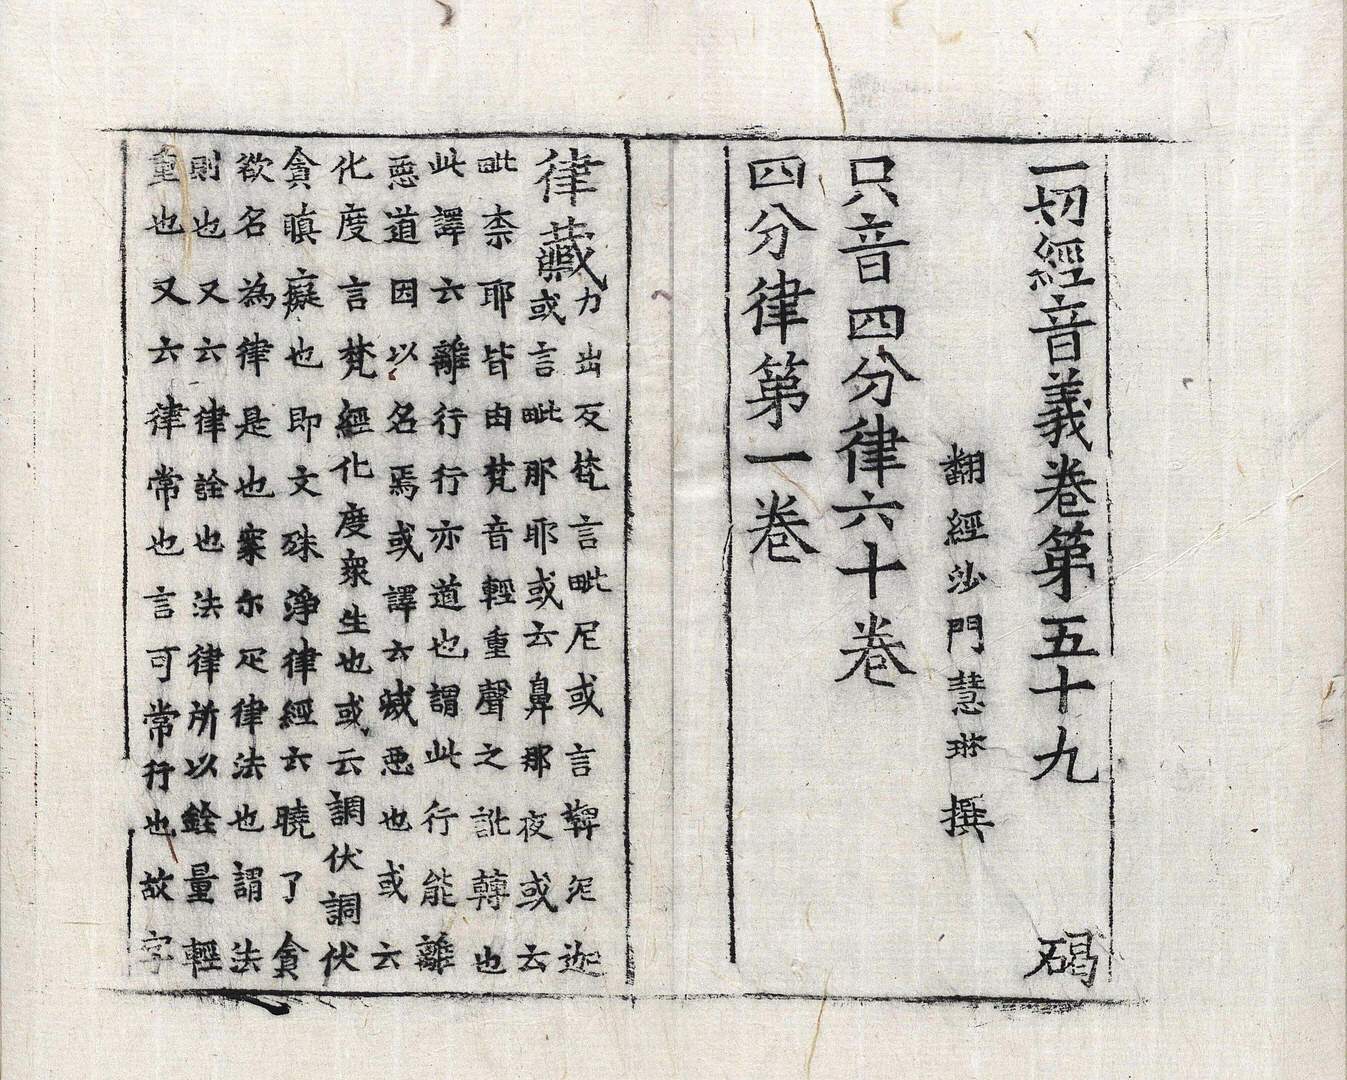 一切經音義卷第五十九　碣
翻經沙門慧琳　撰
只音四分律六十卷
四分律第一卷
律藏力出反梵言毗尼或言鞞泥迦
或言毗那耶或云鼻那夜或云
毗柰耶皆由梵音輕重聲之訛轉也
此譯云離行行亦道也謂此行能離
惡道因以名焉或譯云滅惡也或云
化度言梵經化度衆生也或云調伏調伏
貪瞋癡也即文殊淨律經云曉了貪
欲名為律是也案尔疋律法也謂法
則也又云律詮也法律所以銓量輕
重也又云律常也言可常行也故字